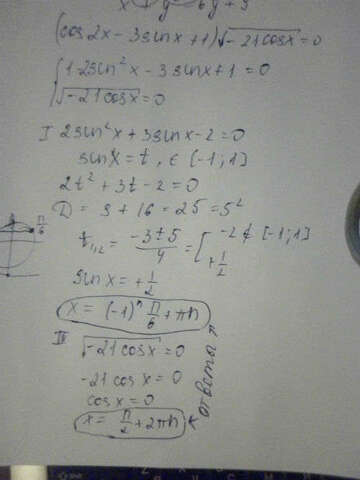 (cos2x - 3sinx + 1)√-21cosx = 0
{1-2sin²x - 3sinx + 1 = 0
√-21cosx = 0
I 2sin²x + 3sinx - 2 = 0
sinx = t, ∈ [-1; 1]
2t² + 3t - 2 = 0
D = 9 + 16 = 25 = 5²
t₁,₂ = (-3±5)/4 = [-2 ∉ [-1; 1]
+1/2
sinx = +1/2
x = (-1)ⁿ π/6 + πn
II √-21cosx = 0
-21cosx = 0
cosx = 0
x = π/2 + 2πn
ответы
π/6